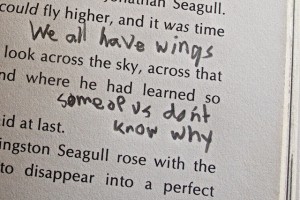 Jonathan Seagull.
could fly higher, and it was time
We all have wings
look across the sky, across that
nd where he had learned so
some of us don't
id at last.
know why
ingston Seagull rose with the
to disappear into a perfect